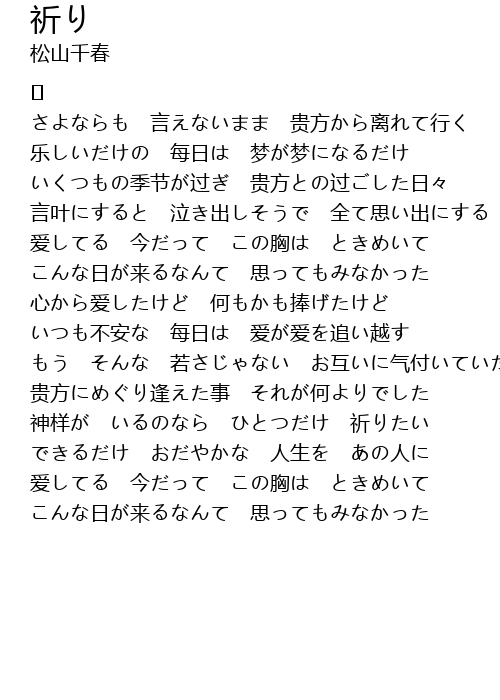 祈り
松山千春
さよならも　言えないまま　贵方から离れて行く
乐しいだけの　每日は　梦が梦になるだけ
いくつもの季节が过ぎ　贵方との过ごした日々
言叶にすると　泣き出しそうで　全て思い出にする
爱してる　今だって　この胸は　ときめいて
こんな日が来るなんて　思ってもみなかった
心から爱したけど　何もかも捧げたけど
いつも不安な　每日は　爱が爱を追い越す
もう　そんな　若さじゃない　お互いに气付いていた
贵方にめぐり逢えた事　それが何よりでした
神样が　いるのなら　ひとつだけ　祈りたい
できるだけ　おだやかな　人生を　あの人に
爱してる　今だって　この胸は　ときめいて
こんな日が来るなんて　思ってもみなかった